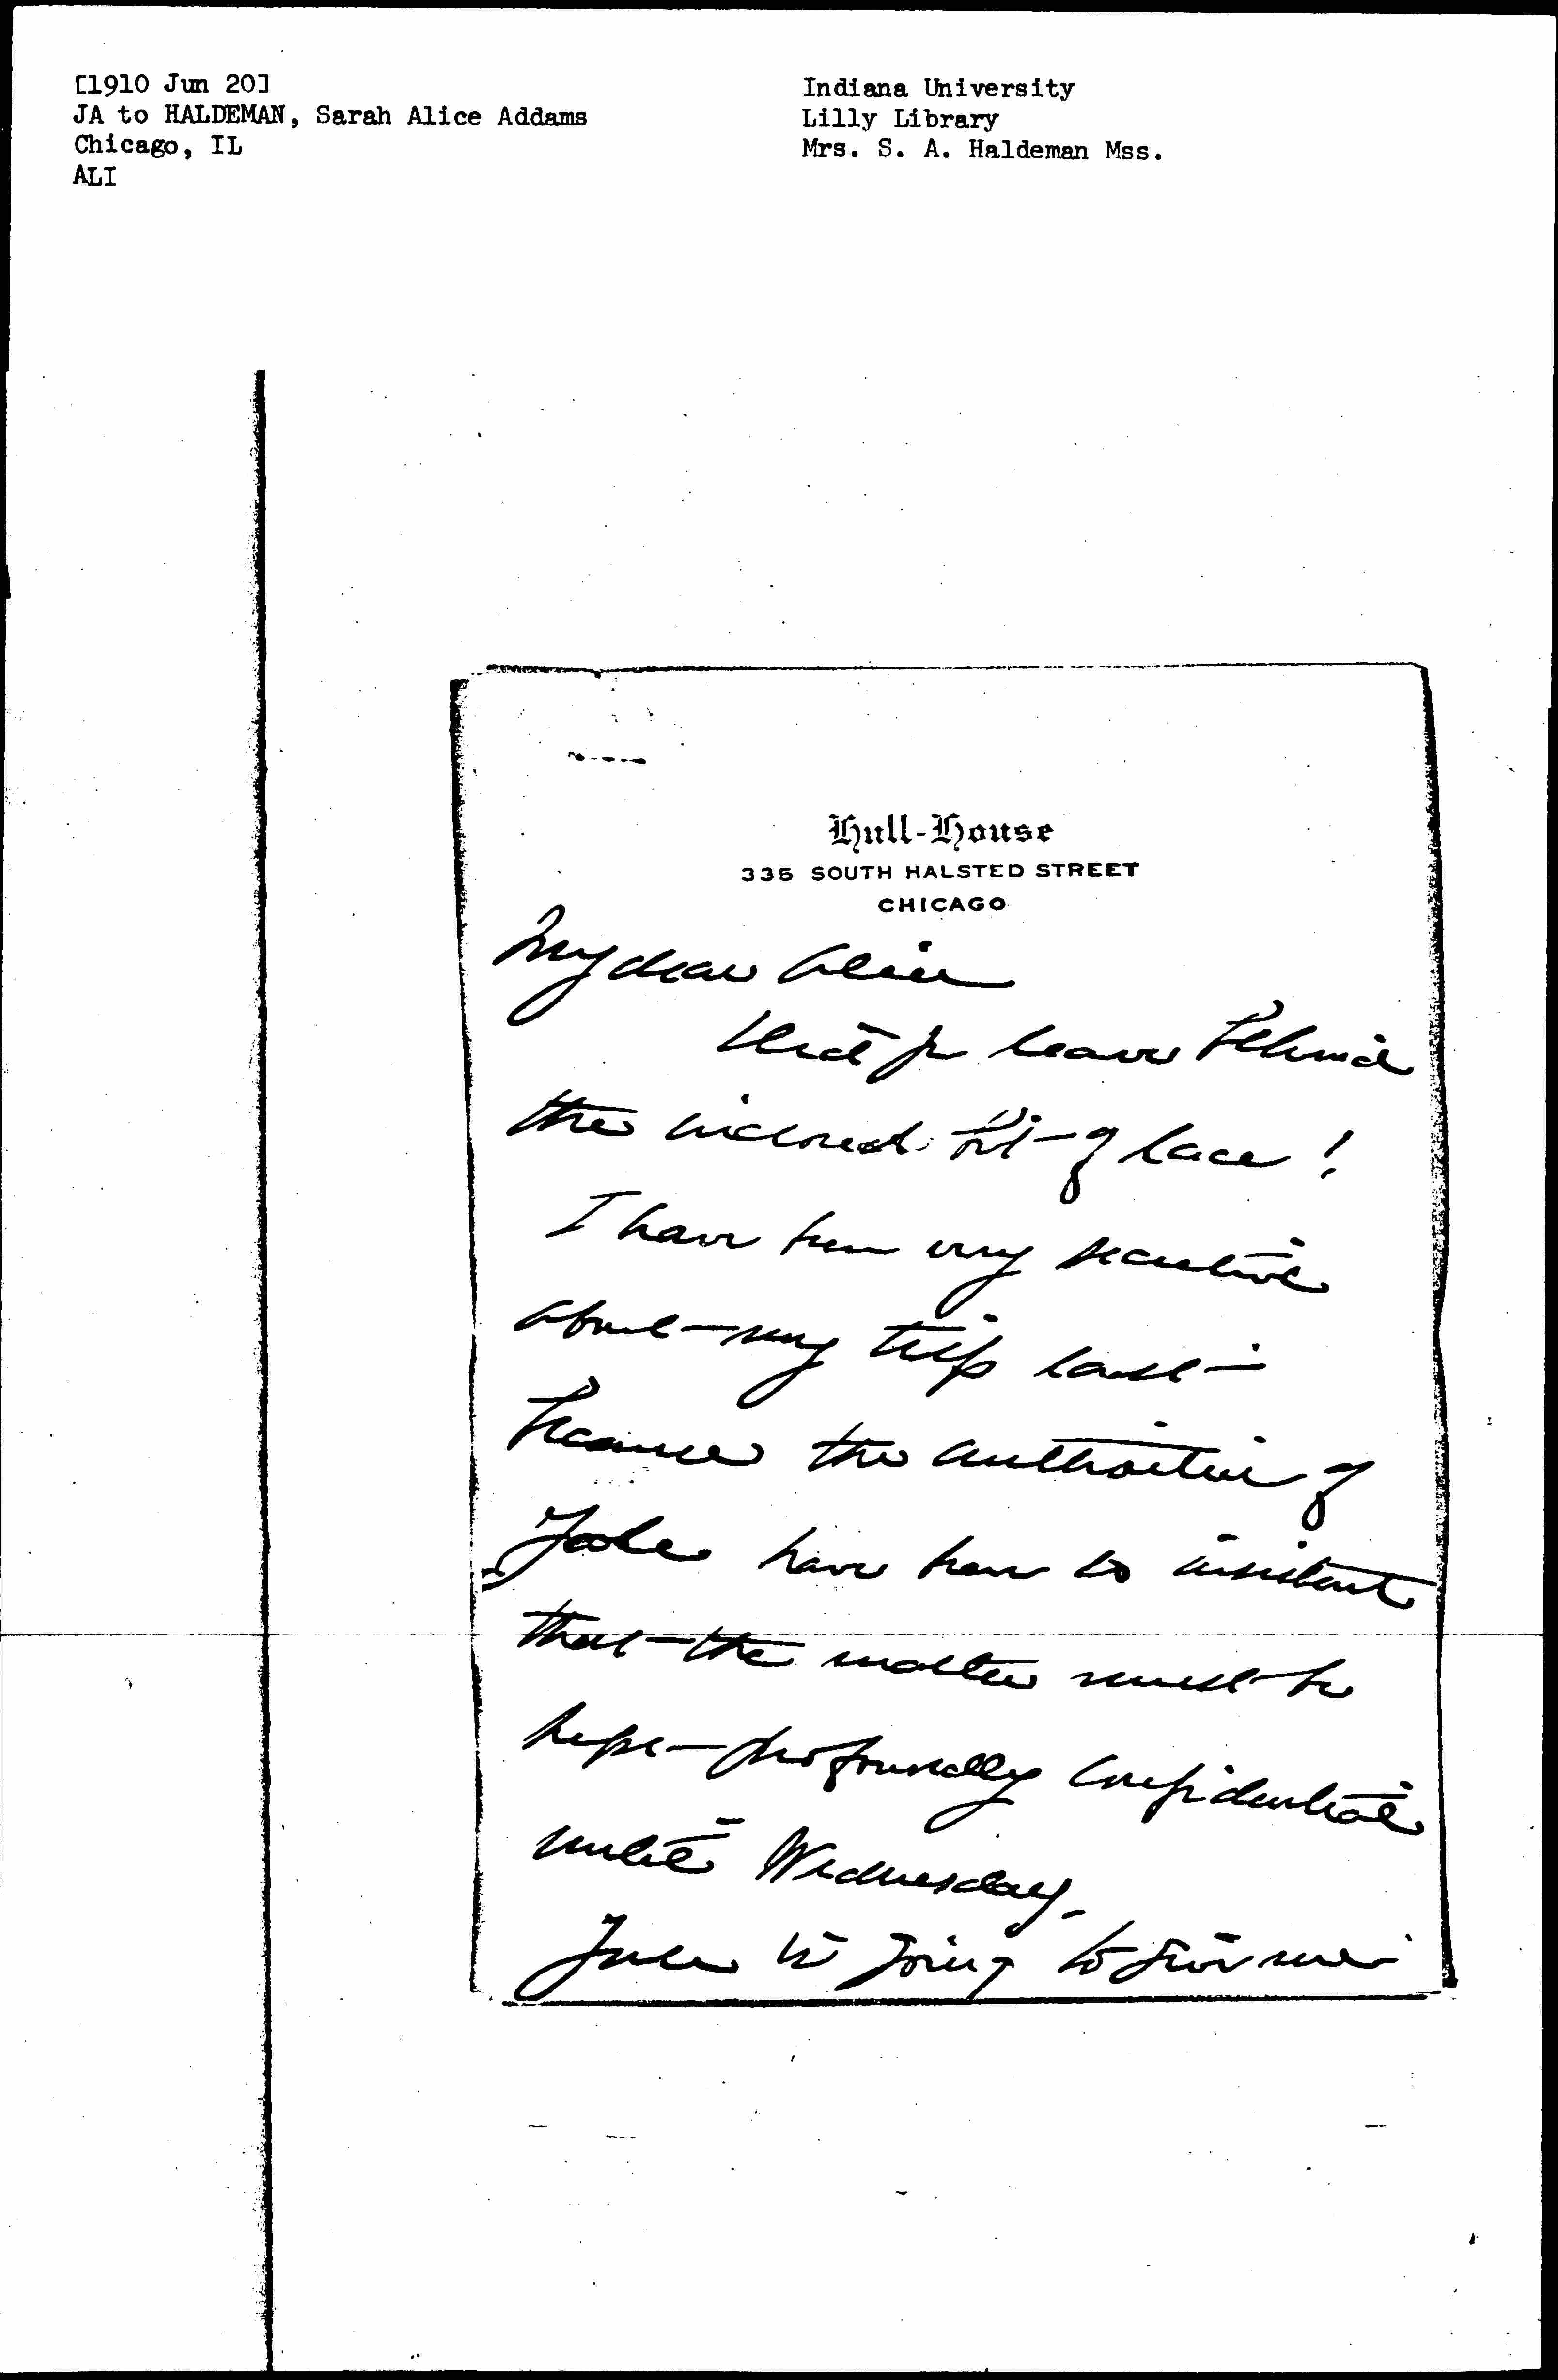 [1910 Jun 20]
JA to HALDEMAN, Sarah Alice Addams
Chicago, IL
ALI
Indiana University
Lilly Library
Mrs. S. A. Haldeman Mss.
Hull-House
335 SOUTH HALSTED STREET
CHICAGO
My dear Alice
Did you leave behind
the inclosed bit of lace!
I have been very secretive
about my trip east
because the authorities of
Yale have been so insistent
that the matter must be
kept profoundly confidential
until Wednesday.
Yale is going to give me